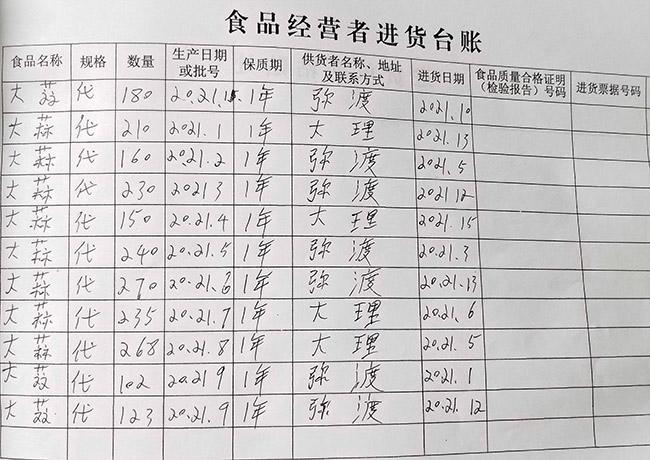 食品经营者进货台账
食品名称 规格 数量 生产日期或批号 保质期 供货者名称、地址及联系方式 进货日期 食品质量合格证明（检验报告）号码 进货票据号码
大蒜 代 180 20.21.1 1年 弥渡 2021.10
大蒜 代 210 2021.1 1年 大理 2021.13
大蒜 代 160 20.21.2 1年 弥渡 2021.5
大蒜 代 230 2021 3 1年 弥渡 2021 12
大蒜 代 150 20.21.4 1年 大理 2021.15
大蒜 代 240 20.21.5 1年 弥渡 2021.3
大蒜 代 270 20.21.6 1年 弥渡 20.21.13
大蒜 代 235 20.21.7 1年 大理 2021.6
大蒜 代 268 20.21.8 1年 大理 2021.5
大蒜 代 102 2021 9 1年 弥渡 2021.1
大蒜 代 123 20.21.9 1年 弥渡 2021.12